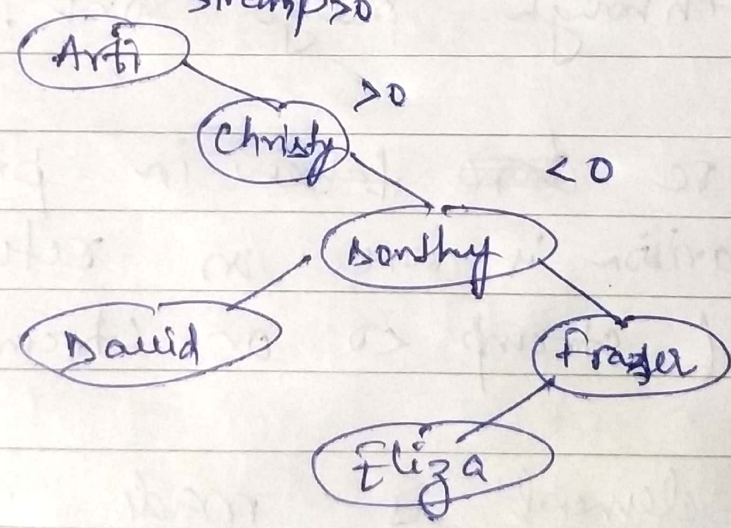 strcmp>0
Arti
>0
Christy
<0
Dorthy
David
Frazer
Eliza